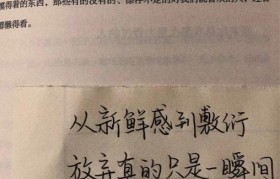 懒得看的东西，那些有的没有的、
都懒得看。
从新鲜感到敷衍
放弃真的只是一瞬间